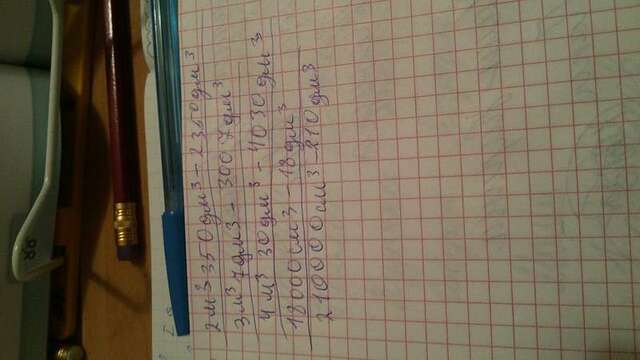 2м³ 350дм³ - 2350дм³
3м³ 7дм3 - 3007дм³
4м³ 30дм³ - 4030дм³
18000см³ - 18дм³
210000см³ - 210дм³